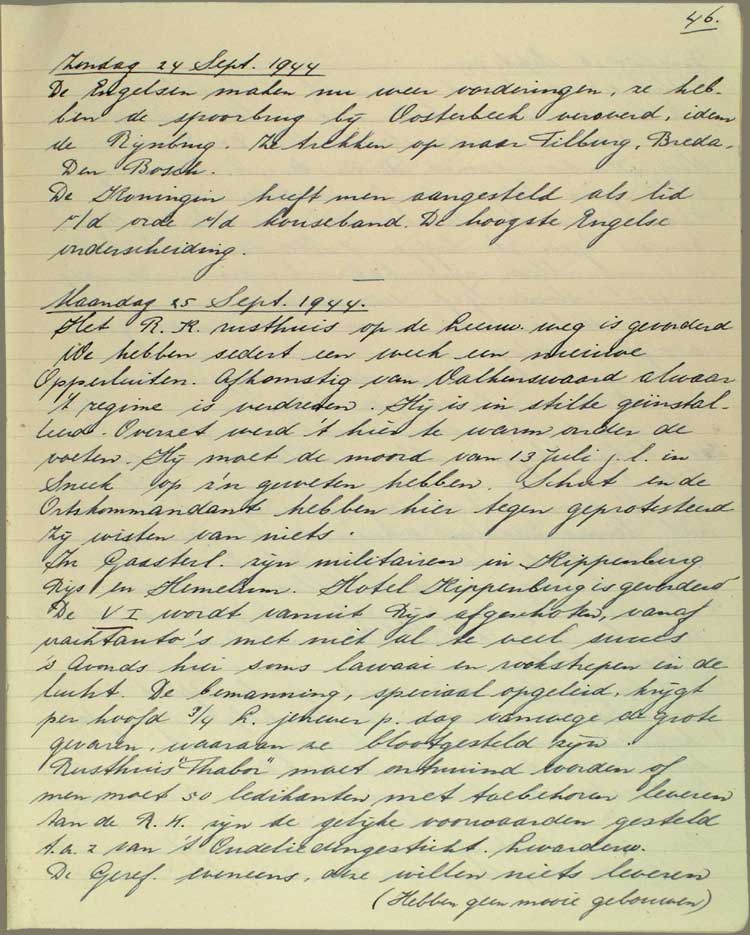 46.
Zondag 24 Sept. 1944
De Engelsen maken nu weer vorderingen, ze heb-
ben de spoorbrug bij Oosterbeek veroverd, idem
de Rijnbrug. Ze trekken op naar Tilburg, Breda,
Den Bosch.
De Koningin heeft men aangesteld als lid
v/d orde v/d kouseband. De hoogste Engelse
onderscheiding.
Maandag 25 Sept. 1944.
Het R.K. rusthuis op de Leeuw. weg is gevorderd
We hebben sedert een week een nieuwe
Opperluiten. Afkomstig van Valkenswaard alwaar
't regime is verdreven. Hij is in stilte geïnstal-
leerd. Overzet werd 't hier te warm onder de
voeten. Hij moet de moord van 13 Juli j.l. in
Sneek op z'n geweten hebben. Schut en de
Ortskommandant hebben hier tegen geprotesteerd
Zij wisten van niets.
In Gaasterl. zijn militairen in Kippenburg
Rijs en Hemelum. Hotel Kippenburg is gevorderd
De V I wordt vanuit Rijs afgeschoten, vanaf
vrachtauto's met niet al te veel succes
's Avonds hier soms lawaai en rookstrepen in de
lucht. De bemanning, speciaal opgeleid, krijgt
per hoofd 3/4 L. jenever p. dag vanwege de grote
gevaren, waaraan ze blootgesteld zijn.
Rusthuis "Thabor" moet ontruimd worden of
men moet 50 ledikanten met toebehoren leveren
Aan de R.K. zijn de gelijke voorwaarden gesteld
t.a.z van 's Oudeliedengesticht. Lwarderw.
De Geref. eveneens, deze willen niets leveren
(Hebben geen mooie gebouwen)